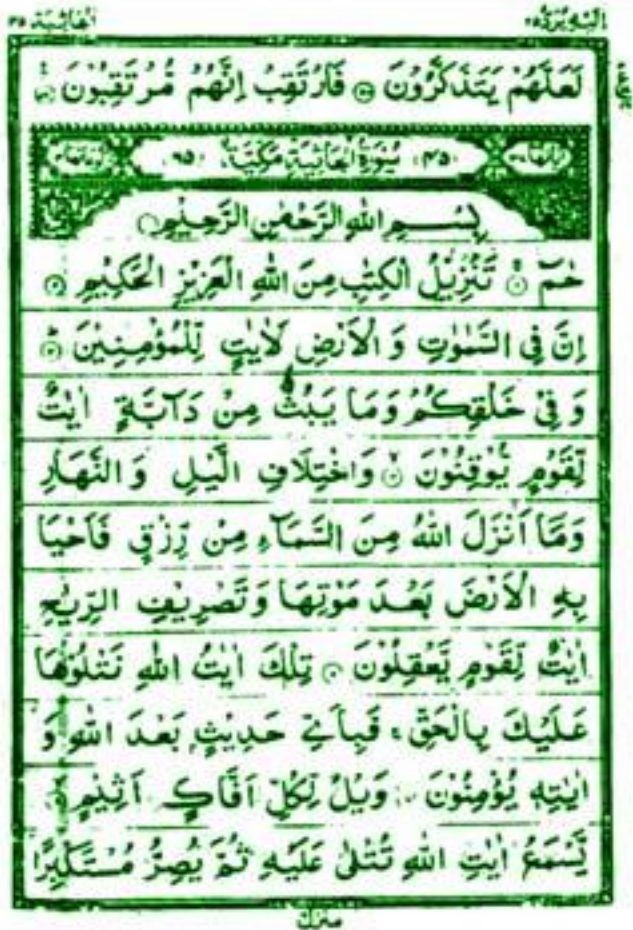 اِلَيْهِ يُرَدُّ ٢٥ الجاثية ٤٥
لَعَلَّهُمْ يَتَذَكَّرُوْنَ ۝ فَارْتَقِبْ اِنَّهُمْ مُّرْتَقِبُوْنَ ۝
﴿٤٥﴾ سُوْرَةُ الْجَاثِيَةِ مَكِّيَّةٌ ﴿٦٥﴾
بِسْمِ اللهِ الرَّحْمٰنِ الرَّحِيْمِ
حٰمٓ ۝ تَنْزِيْلُ الْكِتٰبِ مِنَ اللهِ الْعَزِيْزِ الْحَكِيْمِ ۝
اِنَّ فِي السَّمٰوٰتِ وَ الْاَرْضِ لَاٰيٰتٍ لِّلْمُؤْمِنِيْنَ ۝
وَ فِيْ خَلْقِكُمْ وَمَا يَبُثُّ مِنْ دَآبَّةٍ اٰيٰتٌ
لِّقَوْمٍ يُّوْقِنُوْنَ ۝ وَاخْتِلَافِ الَّيْلِ وَ النَّهَارِ
وَمَآ اَنْزَلَ اللهُ مِنَ السَّمَآءِ مِنْ رِّزْقٍ فَاَحْيَا
بِهِ الْاَرْضَ بَعْدَ مَوْتِهَا وَ تَصْرِيْفِ الرِّيٰحِ
اٰيٰتٌ لِّقَوْمٍ يَّعْقِلُوْنَ ۝ تِلْكَ اٰيٰتُ اللهِ نَتْلُوْهَا
عَلَيْكَ بِالْحَقِّ ۚ فَبِاَيِّ حَدِيْثٍۭ بَعْدَ اللهِ وَ
اٰيٰتِهٖ يُؤْمِنُوْنَ ۝ وَيْلٌ لِّكُلِّ اَفَّاكٍ اَثِيْمٍ ۝
يَّسْمَعُ اٰيٰتِ اللهِ تُتْلٰى عَلَيْهِ ثُمَّ يُصِرُّ مُسْتَكْبِرًا